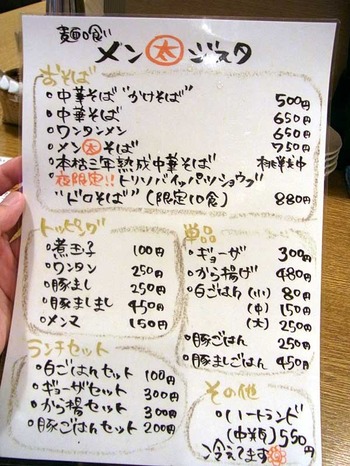 麺喰い
メン太ジスタ
おそば
中華そば "かけそば" 500円
中華そば 650円
ワンタンメン 650円
メン太そば 750円
本枯三年熟成中華そば 挑戦中
夜限定!! ヒトリソバイッパツショウブ
"ドロそば" (限定10食) 880円
トッピング
煮玉子 100円
ワンタン 250円
豚まし 250円
豚ましまし 450円
メンマ 150円
単品
ギョーザ 300円
から揚げ 480円
白ごはん (小) 80円
(中) 150円
(大) 250円
豚ごはん 250円
豚ましごはん 450円
ランチセット
白ごはんセット 100円
ギョーザセット 300円
から揚セット 300円
豚ごはんセット 200円
その他
ハートランド
(中瓶) 550円
冷えてます